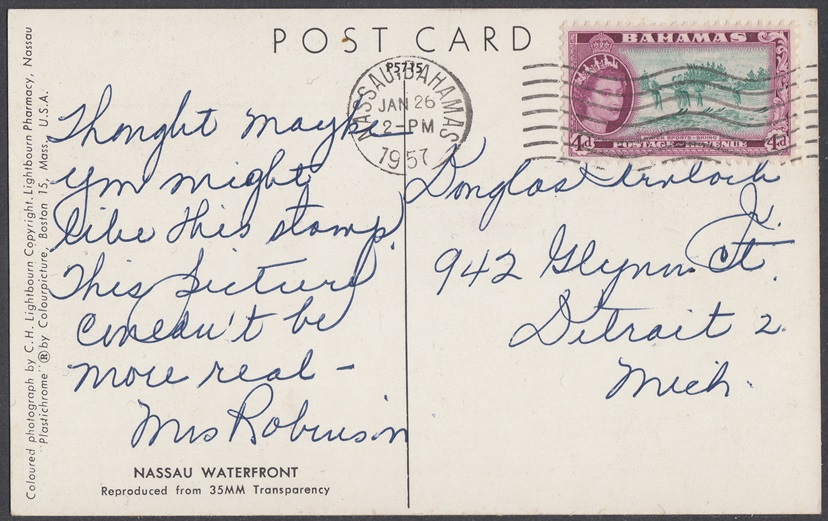 POST CARD
P57154
NASSAU-BAHAMAS
JAN 26
2-PM
1957
BAHAMAS
4d
4d
POSTAGE REVENUE
Thought maybe
you might
like this stamp.
This picture
couldn't be
more real -
Mrs Robinson
Douglas
Jr.
942 Glynn Ct.
Detroit 2.
Mich.
NASSAU WATERFRONT
Reproduced from 35MM Transparency
Coloured photograph by C.H. Lightbourn Copyright. Lightbourn Pharmacy, Nassau
"Plastichrome" ® by Colourpicture, Boston 15, Mass. U.S.A.